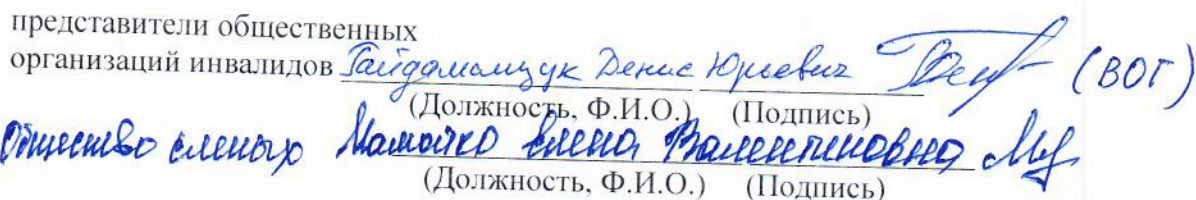 представители общественных
организаций инвалидов Гайдамащук Денис Юрьевич (ВОГ)
(Должность, Ф.И.О.) (Подпись)
Общество слепых Елена Валентиновна
(Должность, Ф.И.О.) (Подпись)